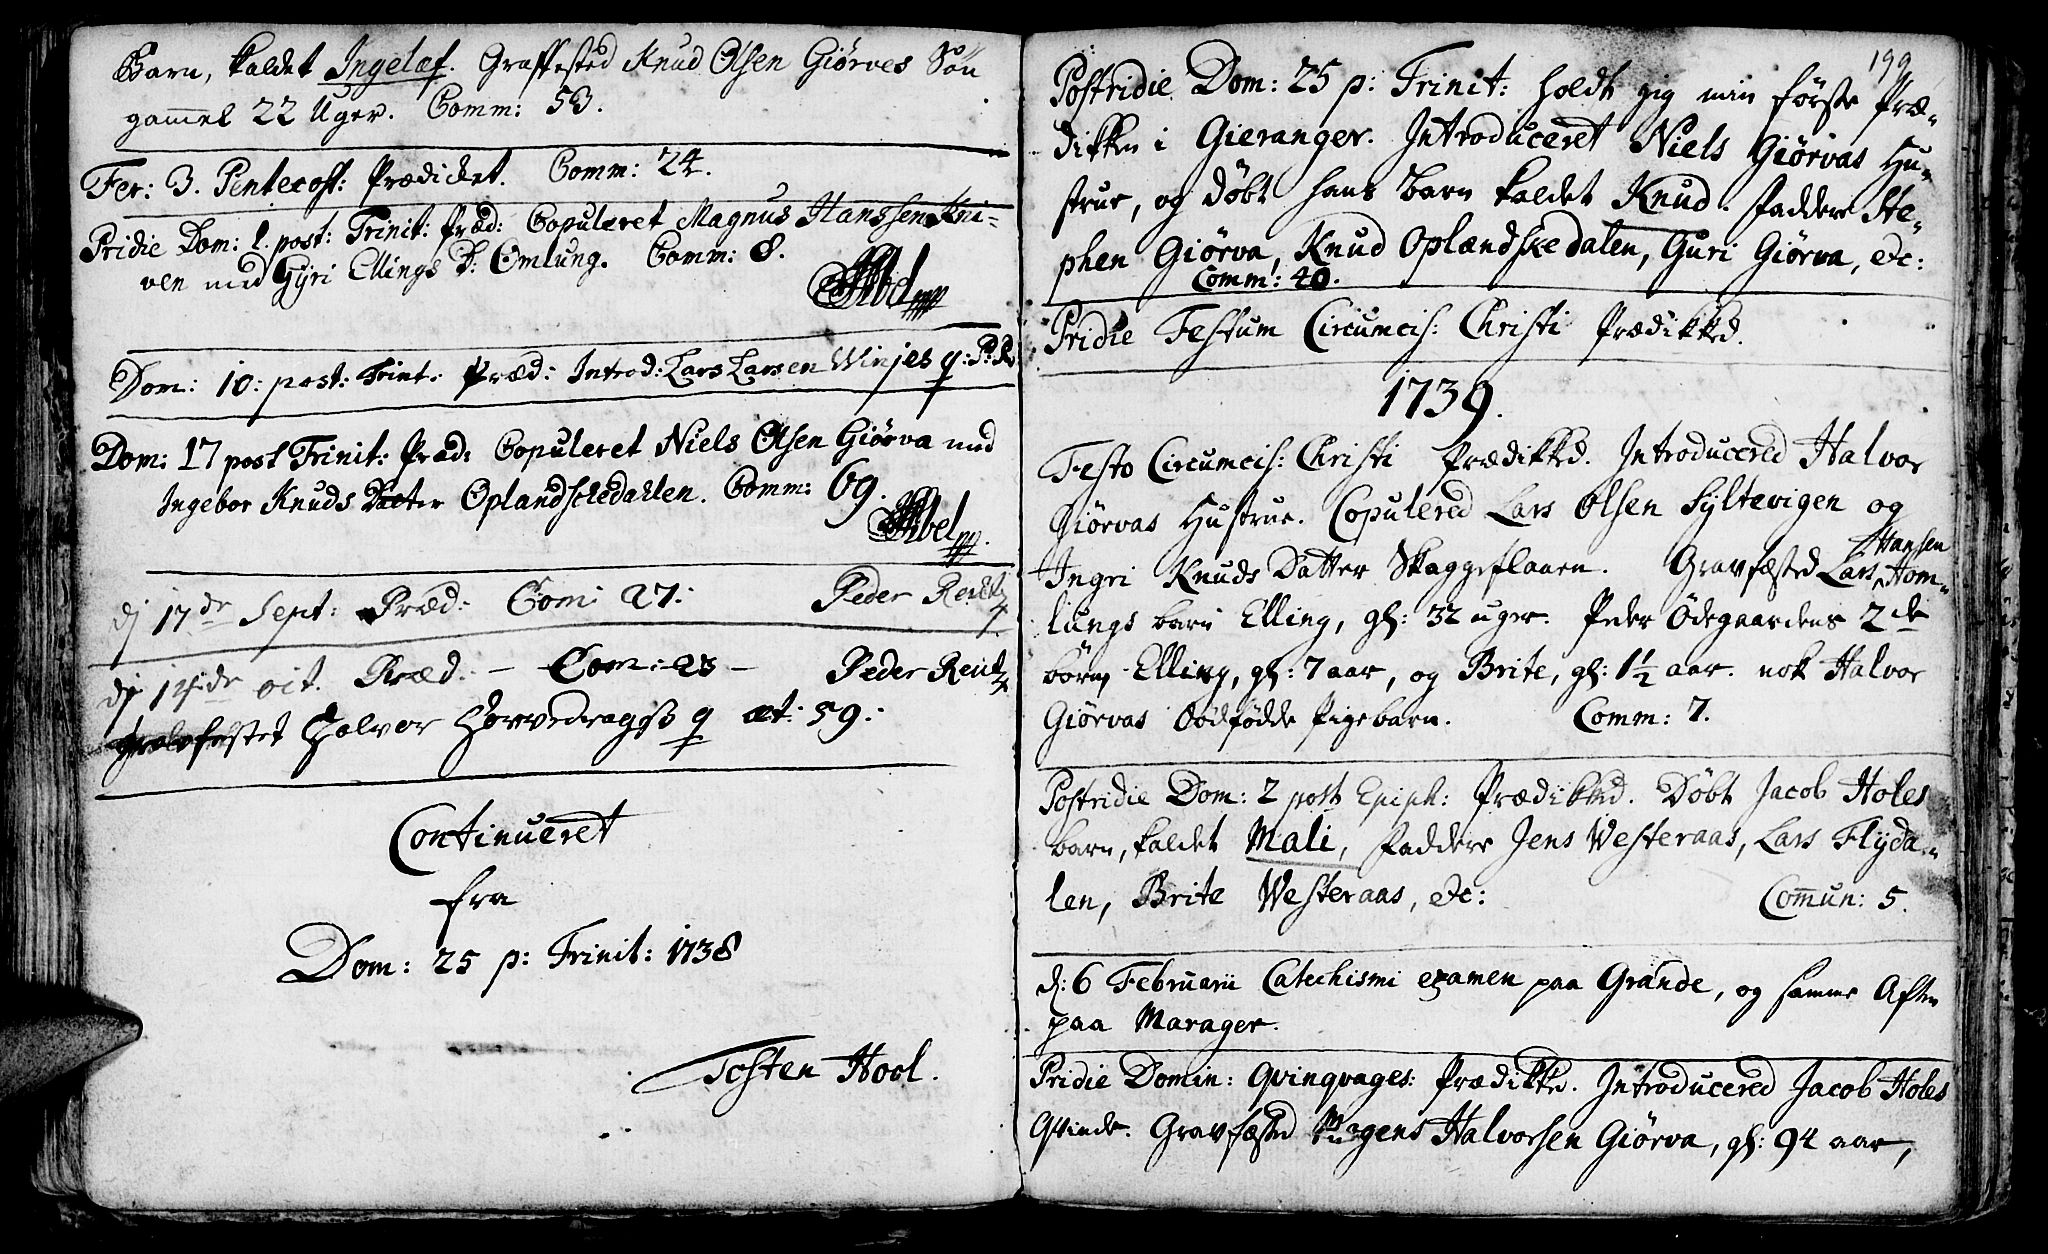 Barn, kaldet Ingelaf. Graffested Knud Olsen Giørves Søn
gammel 22 Uger. Comm: 53.
Fer: 3. Pentecost: Prædicket. Comm: 24.
Pridie Dom: 1. post: Trinit: Præd: Copuleret Magnus Hanssen Kni-
ven med Gyri Ellings D: Omlung. Comm: 8.
Abel
Dom: 10: post: Trint: Præd: Introd: Lars Larsen Winjes q: P: R
Dom: 17 post Trinit: Præd: Copuleret Niels Olsen Giørva med
Ingebor Knuds Datter Oplandschedahlen. Comm: 69.
Abel
dj 17de Sept: Præd: Com: 27: Peder Reutz
dj 14de oct. Præd: - Com: 23 - Peder Reutz
gravfestet Halvor Horvedragsb q æt: 59:
Continueret
fra
Dom: 25 p: Trinit: 1738
Tosten Hool.
199
Postridie Dom: 25 p: Trinit: holdt jig min første Præ-
dikken i Gieranger. Introduceret Niels Giørvas Hu-
strue, og døbt hans barn kaldet Knud. Faddere Ste-
phen Giørva, Knud Oplændskedalen, Guri Giørva, etc:
Comm: 40.
Pridie Festum Circumcis: Christi Prædikked.
1739.
Festo Circumcis: Christi Prædikked. Introducered Halvor
Giørvas Hustrue. Copulered Lars Olsen Syltevigen og
Ingri Knuds Datter Skaggeflaaen. Gravfæsted Lars Hansen Hom-
lungs barn Elling, gl: 32 uger. Peder Ødegaardens 2de
børn Elling, gl: 7 aar, og Brite, gl: 1 1/2 aar. nok Halvor
Giørvas dødfødde Pigebarn. Comm: 7.
Postridie Dom: 2 post Epiph: Prædikked. Døbt Jacob Holes
barn, kaldet Mali, Faddere Jens Westeraas, Lars Flyda-
len, Brite Westeraas, etc: Commun: 5.
d: 6 Februarii Catechismi examen paa Grande, og samme Aften
paa Marager.
Pridie Domin: Qvinqvages: Prædikked. Introducered Jacob Holes
Qvinde. Gravfæsted Mogens Halvorsen Giørva, gl: 94 aar,